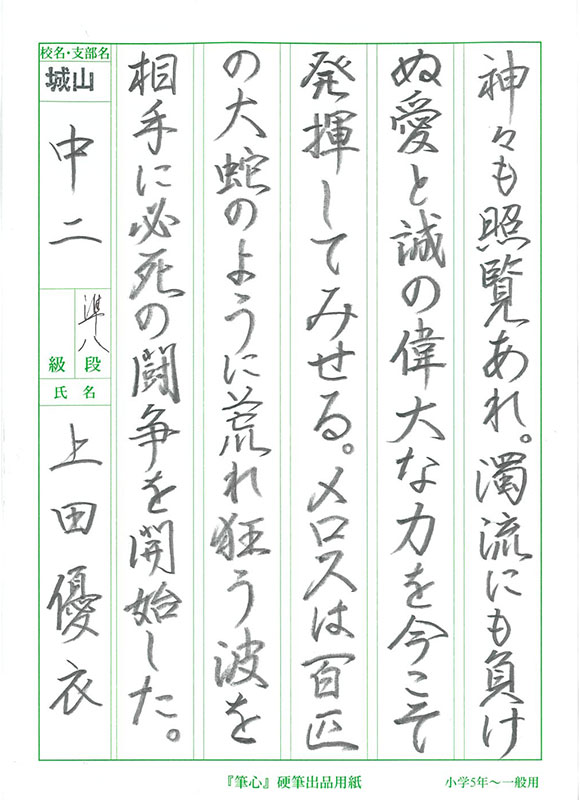 神々も照覧あれ。濁流にも負け
ぬ愛と誠の偉大な力を今こそ
発揮してみせる。メロスは百匹
の大蛇のように荒れ狂う波を
相手に必死の闘争を開始した。
校名・支部名
城山
中二
準八段
級
氏名
上田優衣
『筆心』硬筆出品用紙
小学5年〜一般用